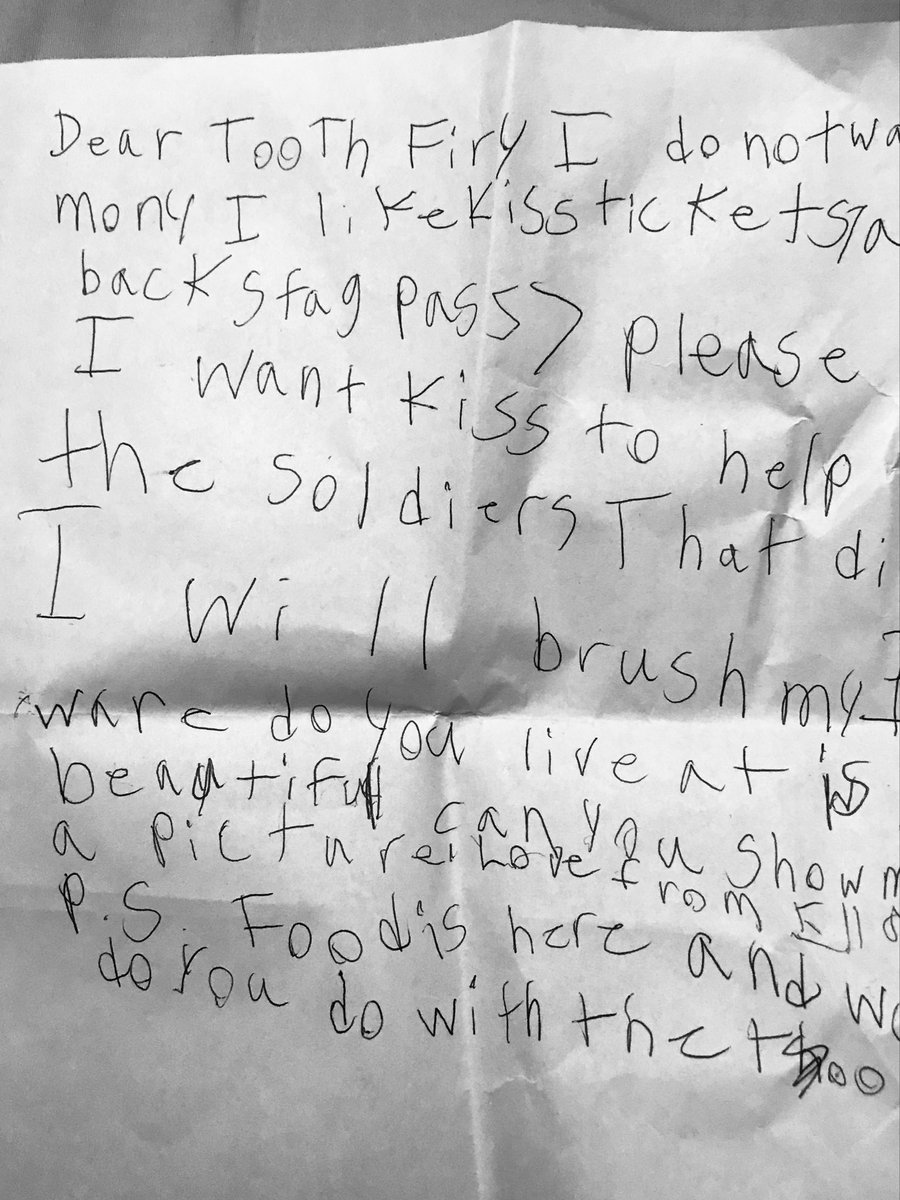 Dear TooTh Firy I do notwa
mony I likekiss tickets/a
backstag pass> please
I want kiss to help
the soldiers That di
I will brush my T
ware do you live at is
beautiful can you show m
a picture. Love from Ell
P.S. Food is here and w
do you do with the too